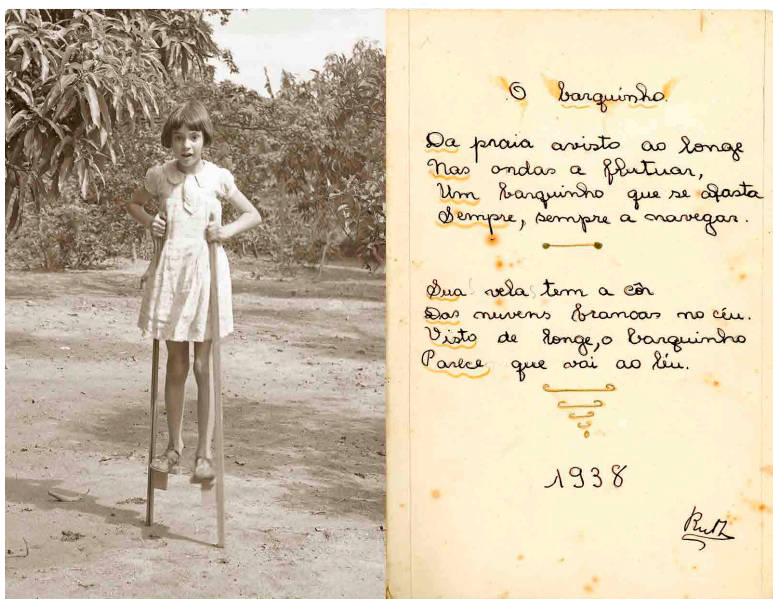 O barquinho.
Da praia avisto ao longe
Nas ondas a flutuar,
Um barquinho que se afasta
Sempre, sempre a navegar.
Sua vela tem a côr
Das nuvens brancas no céu.
Visto de longe, o barquinho
Parece que vai ao léu.
1938
Ruth